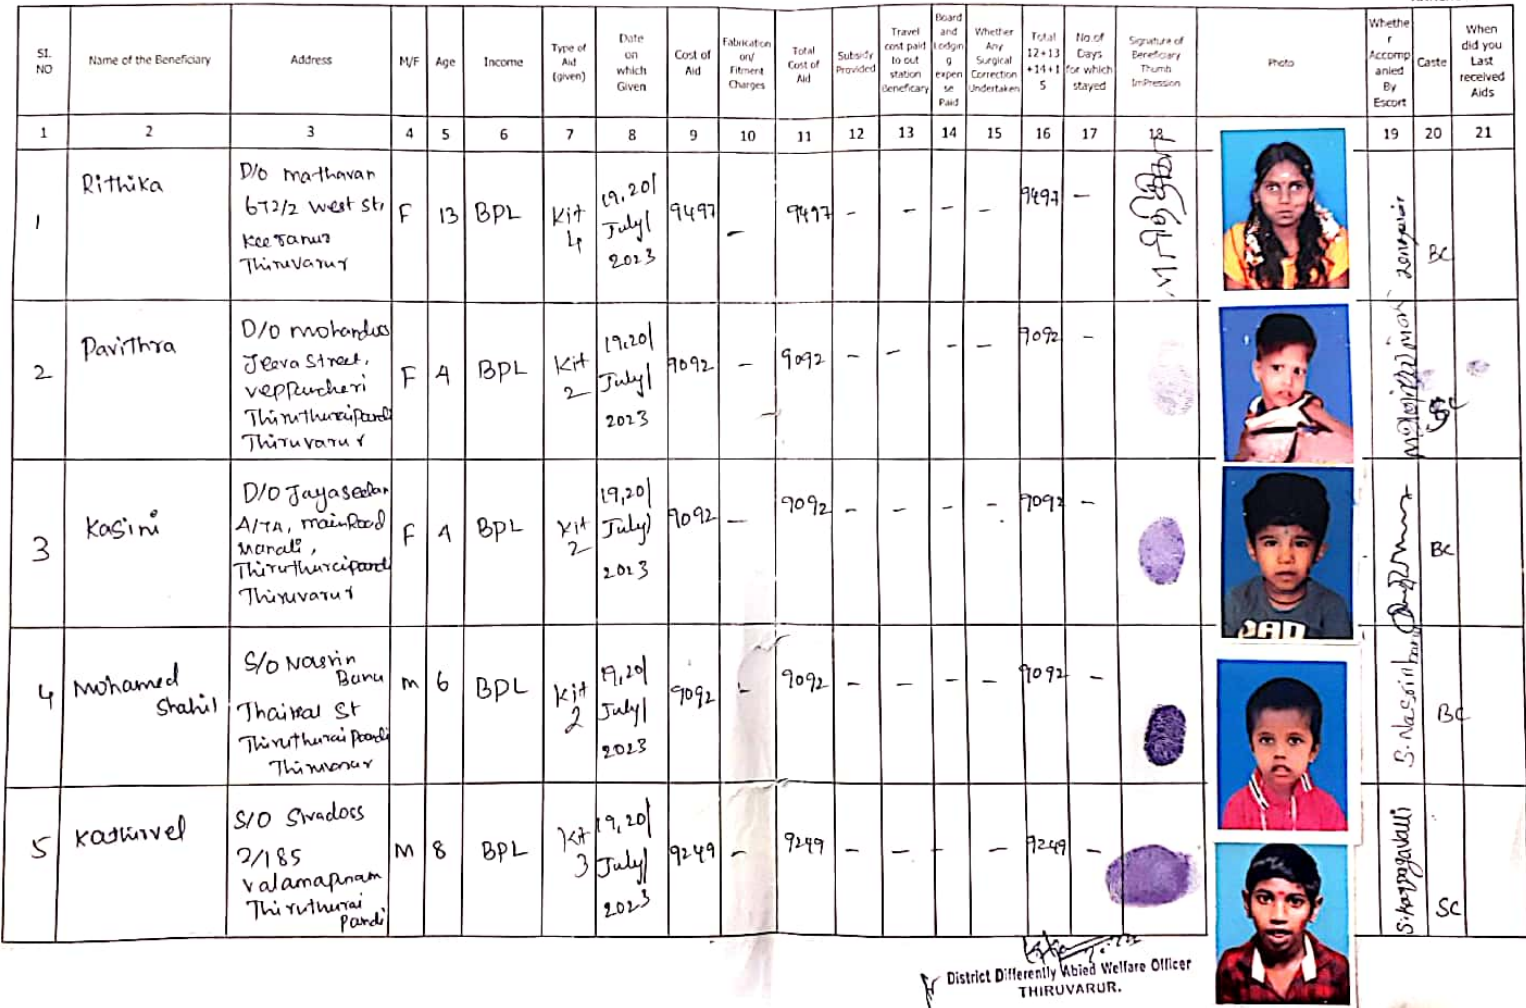 SI. NO
Name of the Beneficiary
Address
M/F
Age
Income
Type of Aid (given)
Date on which Given
Cost of Aid
Fabrication on/ Fitment Charges
Total Cost of Aid
Subsidy Provided
Travel cost paid to out station Beneficary
Board and Lodgin g expen se Paid
Whether Any Surgical Correction Undertaken
Total 12+13 +14+1 5
No.of Days for which stayed
Signature of Beneficiary Thumb ImPression
Photo
Whethe r Accomp anied By Escort
Caste
When did you Last received Aids
1 2 3 4 5 6 7 8 9 10 11 12 13 14 15 16 17 18 19 20 21
1 Rithika
D/o mathavan
672/2 west st,
Keeranur
Thiruvarur
F 13 BPL Kit 4
19,20/ July/ 2023
9497 - 9497 - - - - 9497 -
BC
2 Pavithra
D/O mohandoss
Jeeva Street,
Thiruthuraipandi
Thiruvarur
F 4 BPL Kit 2
19,20/ July/ 2023
9092 - 9092 - - - - 9092 -
3 Kasini
D/O Jayaseelan
A/7A, main Road
Manali,
Thiruthuraipandi
Thiruvarur
F 4 BPL Kit 2
19,20/ July/ 2023
9092 - 9092 - - - - 9092 -
BC
4 Mohamed Shahil
S/O Nasrin
Banu
St
Thiruthuraipoondi
Thiruvarur
M 6 BPL Kit 2
19,20/ July/ 2023
9092 - 9092 - - - - 9092 -
S. Nassrin banu
BC
5 Kathirvel
S/O Sivadoss
2/185
Thiruthurai
Pandi
M 8 BPL Kit 3
19,20/ July/ 2023
9249 - 9249 - - - - 9249 -
S. Karpagavalli
SC
District Differently Abled Welfare Officer
THIRUVARUR.